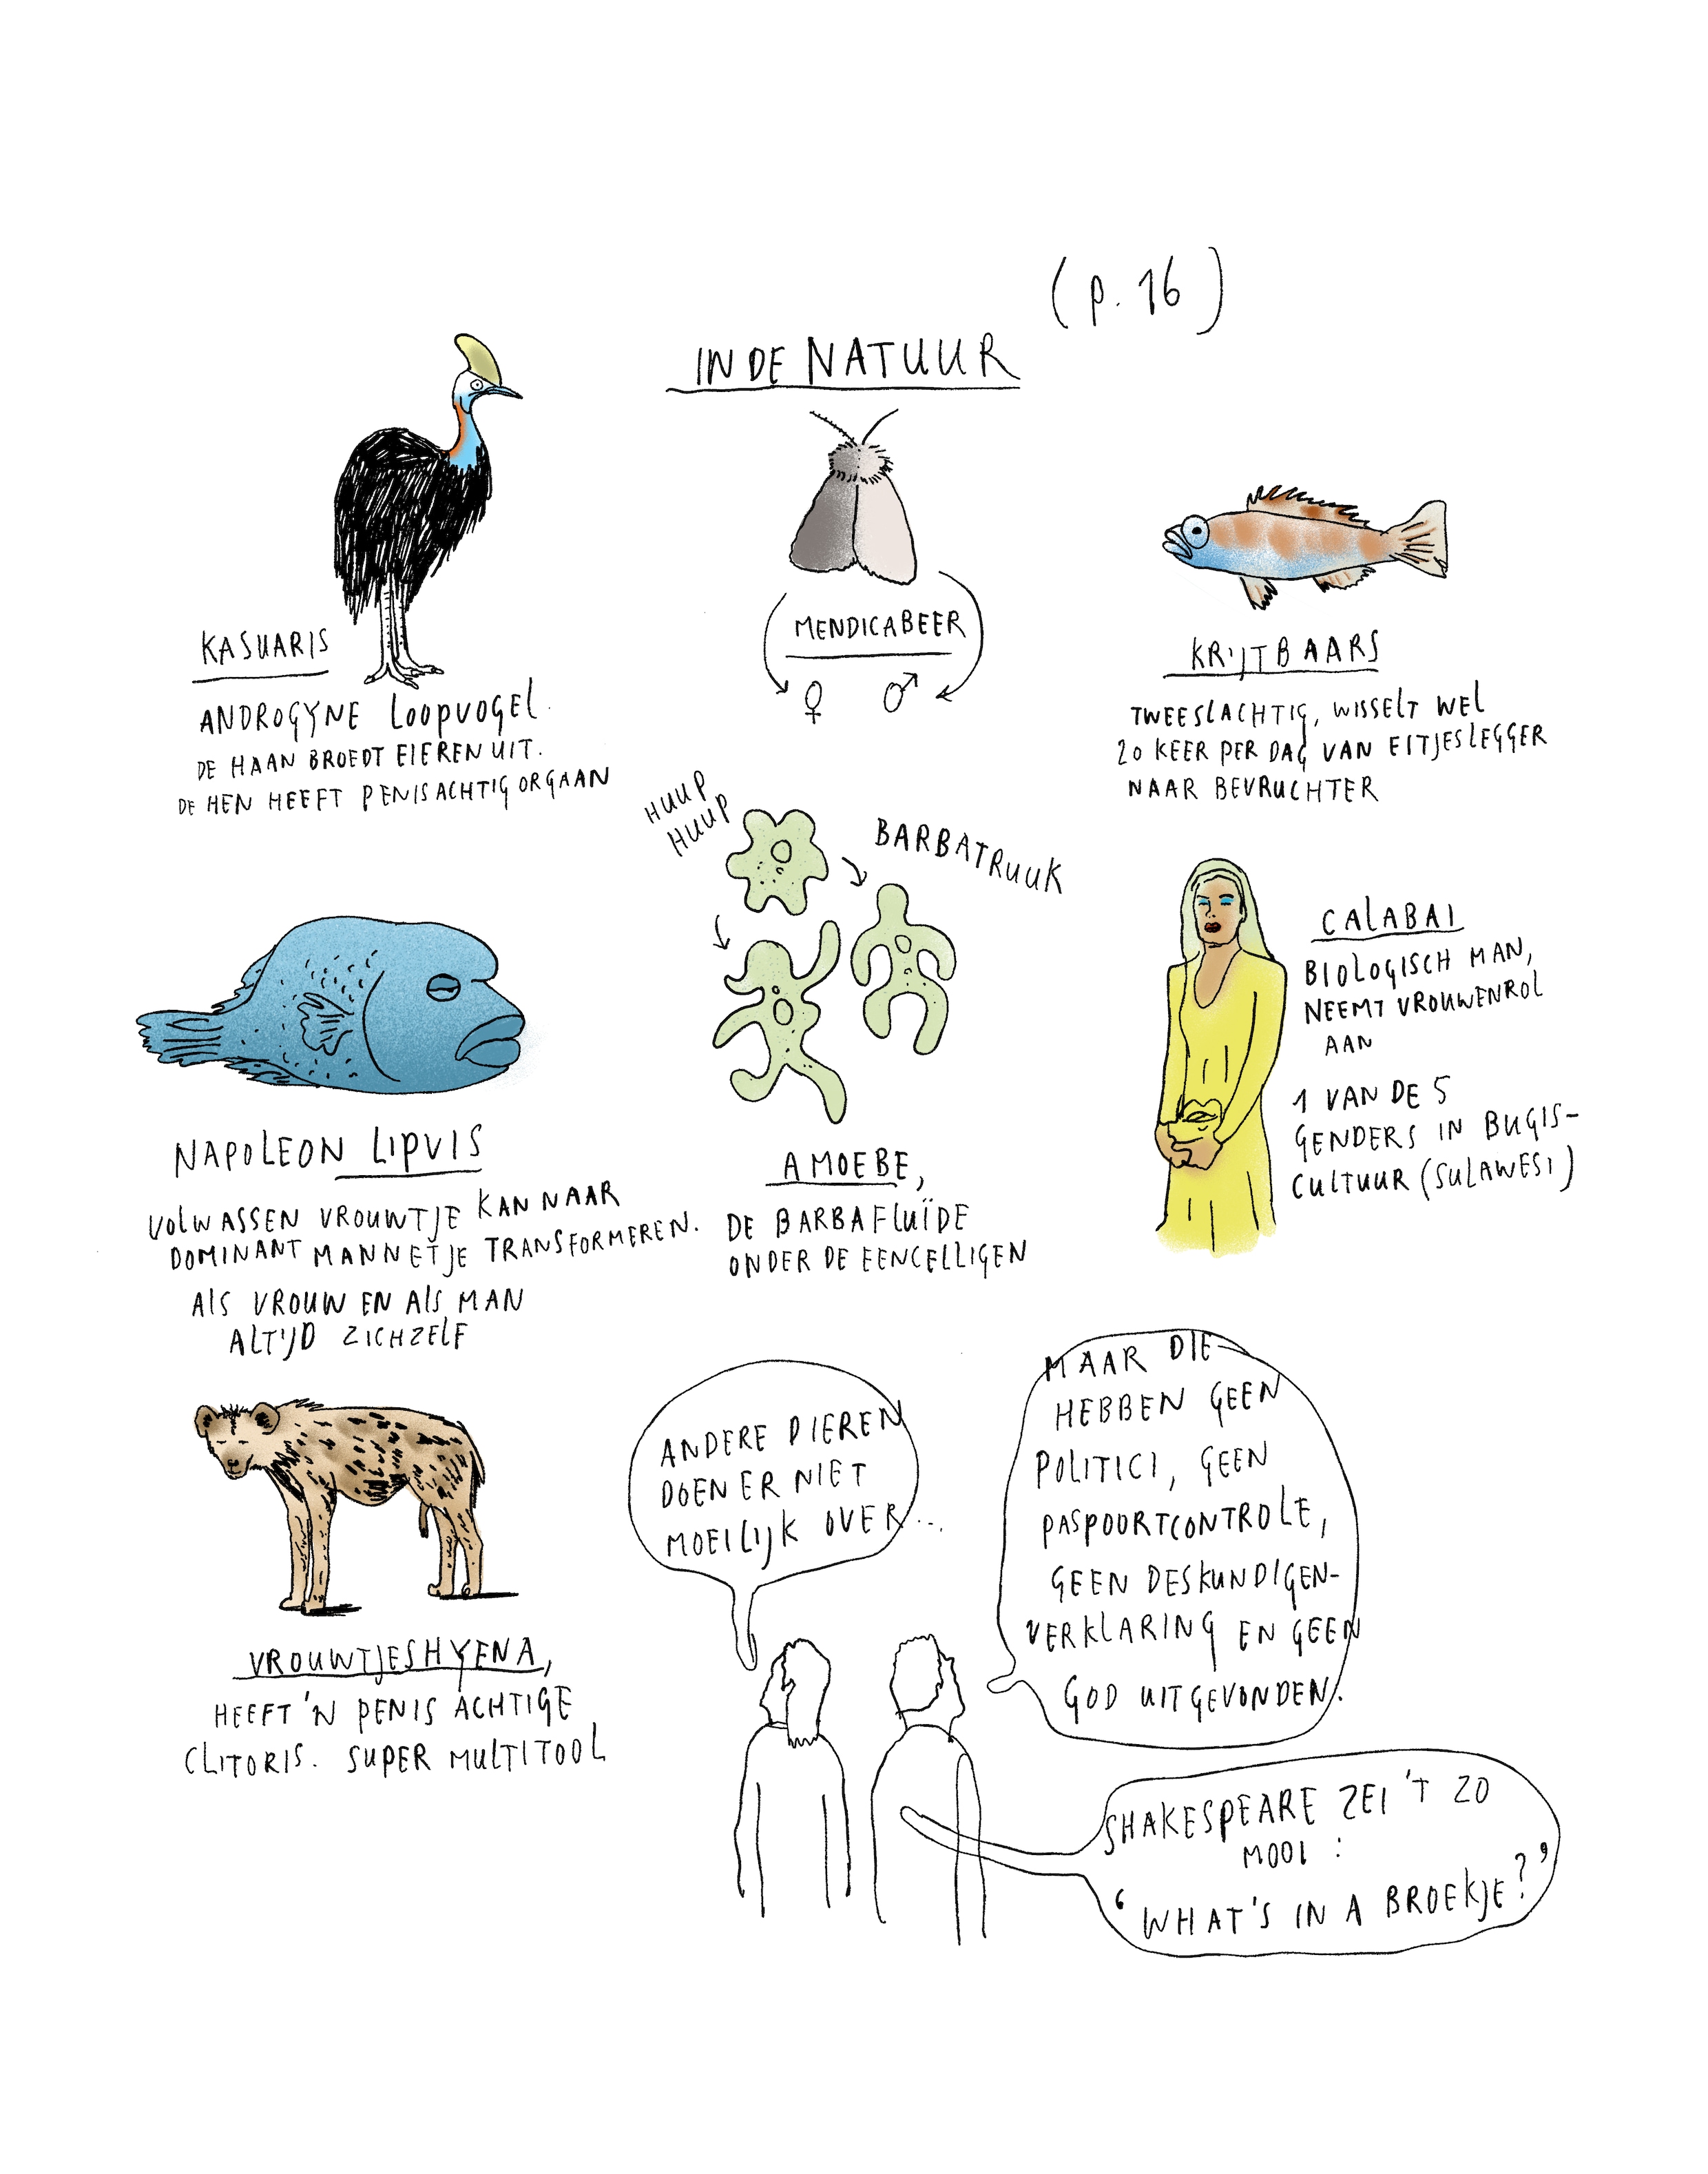 (p. 16)
IN DE NATUUR
KASUARIS
ANDROGYNE LOOPVOGEL.
DE HAAN BROEDT EIEREN UIT.
DE HEN HEEFT PENISACHTIG ORGAAN
MENDICABEER
♀ ♂
KRIJTBAARS
TWEESLACHTIG, WISSELT WEL
20 KEER PER DAG VAN EITJESLEGGER
NAAR BEVRUCHTER
HUUP
HUUP
BARBATRUUK
AMOEBE,
DE BARBAFLUÏDE
ONDER DE EENCELLIGEN
CALABAI
BIOLOGISCH MAN,
NEEMT VROUWENROL
AAN
1 VAN DE 5
GENDERS IN BUGIS-
CULTUUR (SULAWESI)
NAPOLEON LIPVIS
VOLWASSEN VROUWTJE KAN NAAR
DOMINANT MANNETJE TRANSFORMEREN.
ALS VROUW EN ALS MAN
ALTIJD ZICHZELF
VROUWTJESHYENA,
HEEFT 'N PENIS ACHTIGE
CLITORIS. SUPER MULTITOOL
ANDERE DIEREN
DOEN ER NIET
MOEILIJK OVER...
MAAR DIE
HEBBEN GEEN
POLITICI, GEEN
PASPOORTCONTROLE,
GEEN DESKUNDIGEN-
VERKLARING EN GEEN
GOD UITGEVONDEN.
SHAKESPEARE ZEI 'T ZO
MOOI :
'WHAT'S IN A BROEKJE?'